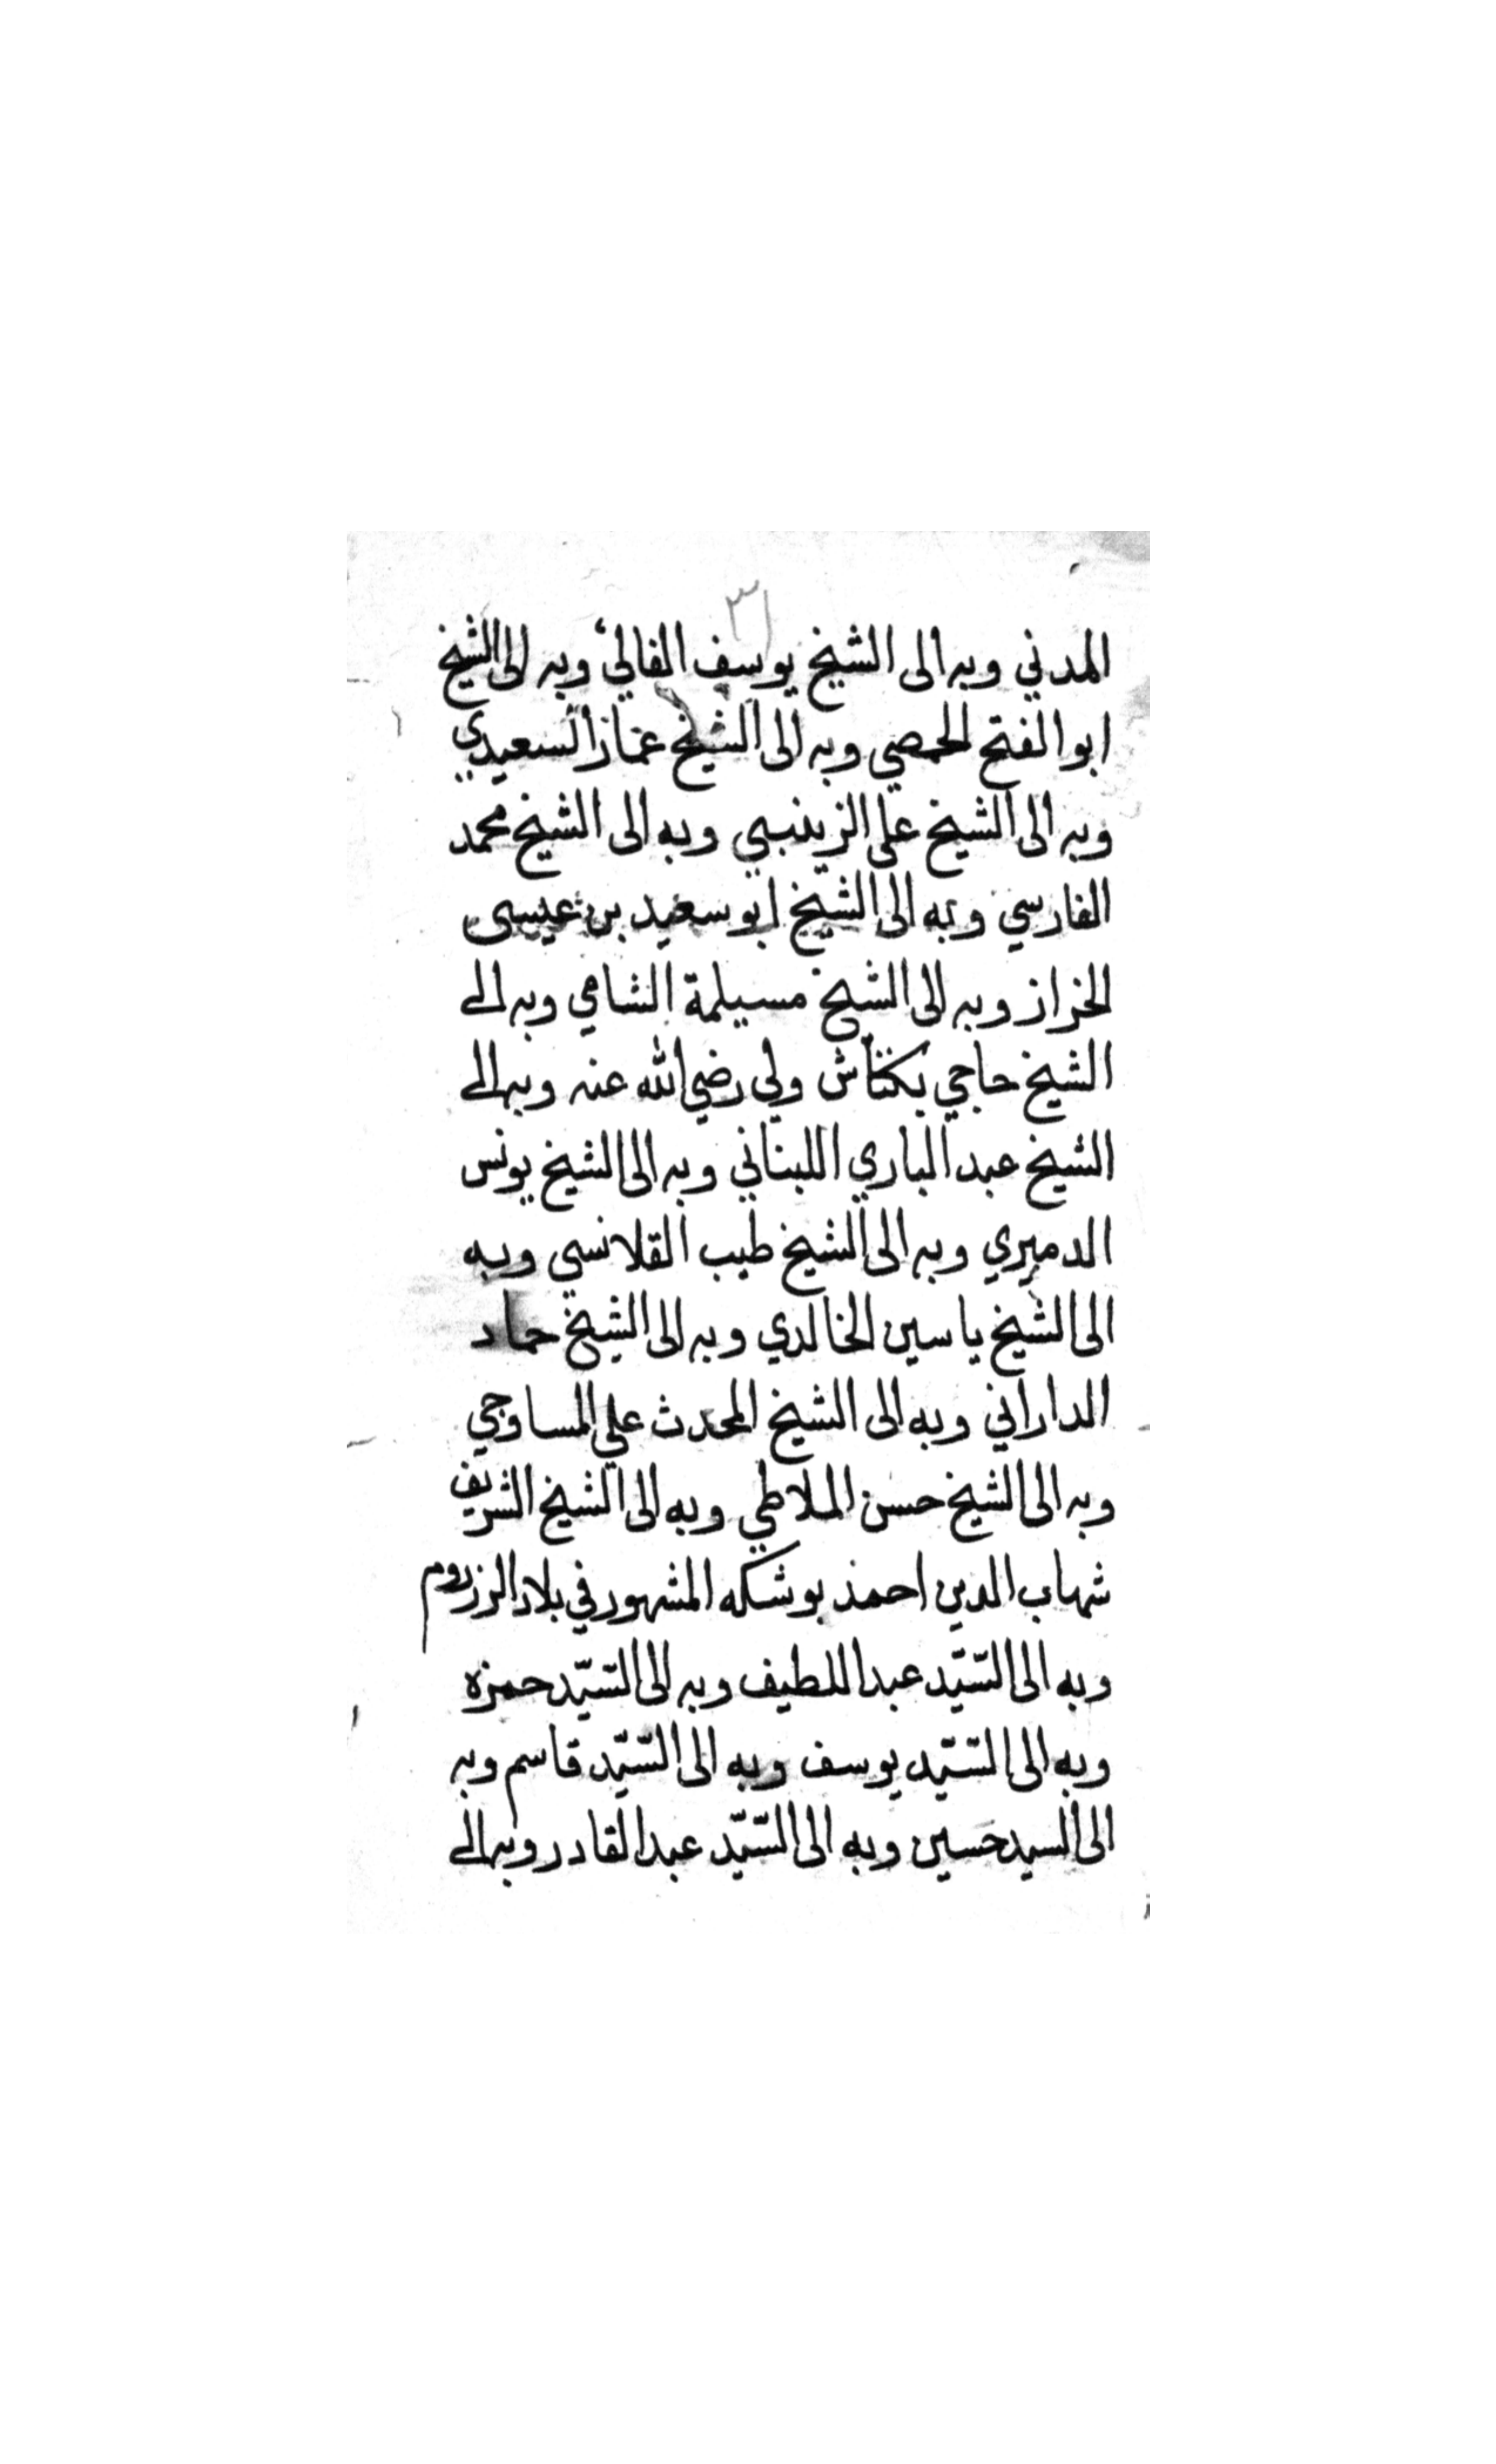 ٣١
المدني وبه الى الشيخ يوسف الفالي وبه الى الشيخ
ابو الفتح الحمصي وبه الى الشيخ عماز السعيدي
وبه الى الشيخ على الزينبي وبه الى الشيخ محمد
الفارسي وبه الى الشيخ ابو سعيد بن عيسى
الخراز وبه الى الشيخ مسيلمة الشامي وبه الى
الشيخ حاجي بكتاش ولي رضي الله عنه وبه الى
الشيخ عبد الباري اللبناني وبه الى الشيخ يونس
الدميري وبه الى الشيخ طيب القلانسي وبه
الى الشيخ ياسين الخالدي وبه الى الشيخ حماد
الداراني وبه الى الشيخ المحدث علي المساوجي
وبه الى الشيخ حسن الملاطي وبه الى الشيخ الشريف
شهاب الدين احمد بوشكه المشهور في بلاد الزروم
وبه الى السّيّد عبد اللطيف وبه الى السّيّد حمزه
وبه الى السّيّد يوسف وبه الى السّيّد قاسم وبه
الى السيد حسين وبه الى السّيّد عبد القادر وبه الى